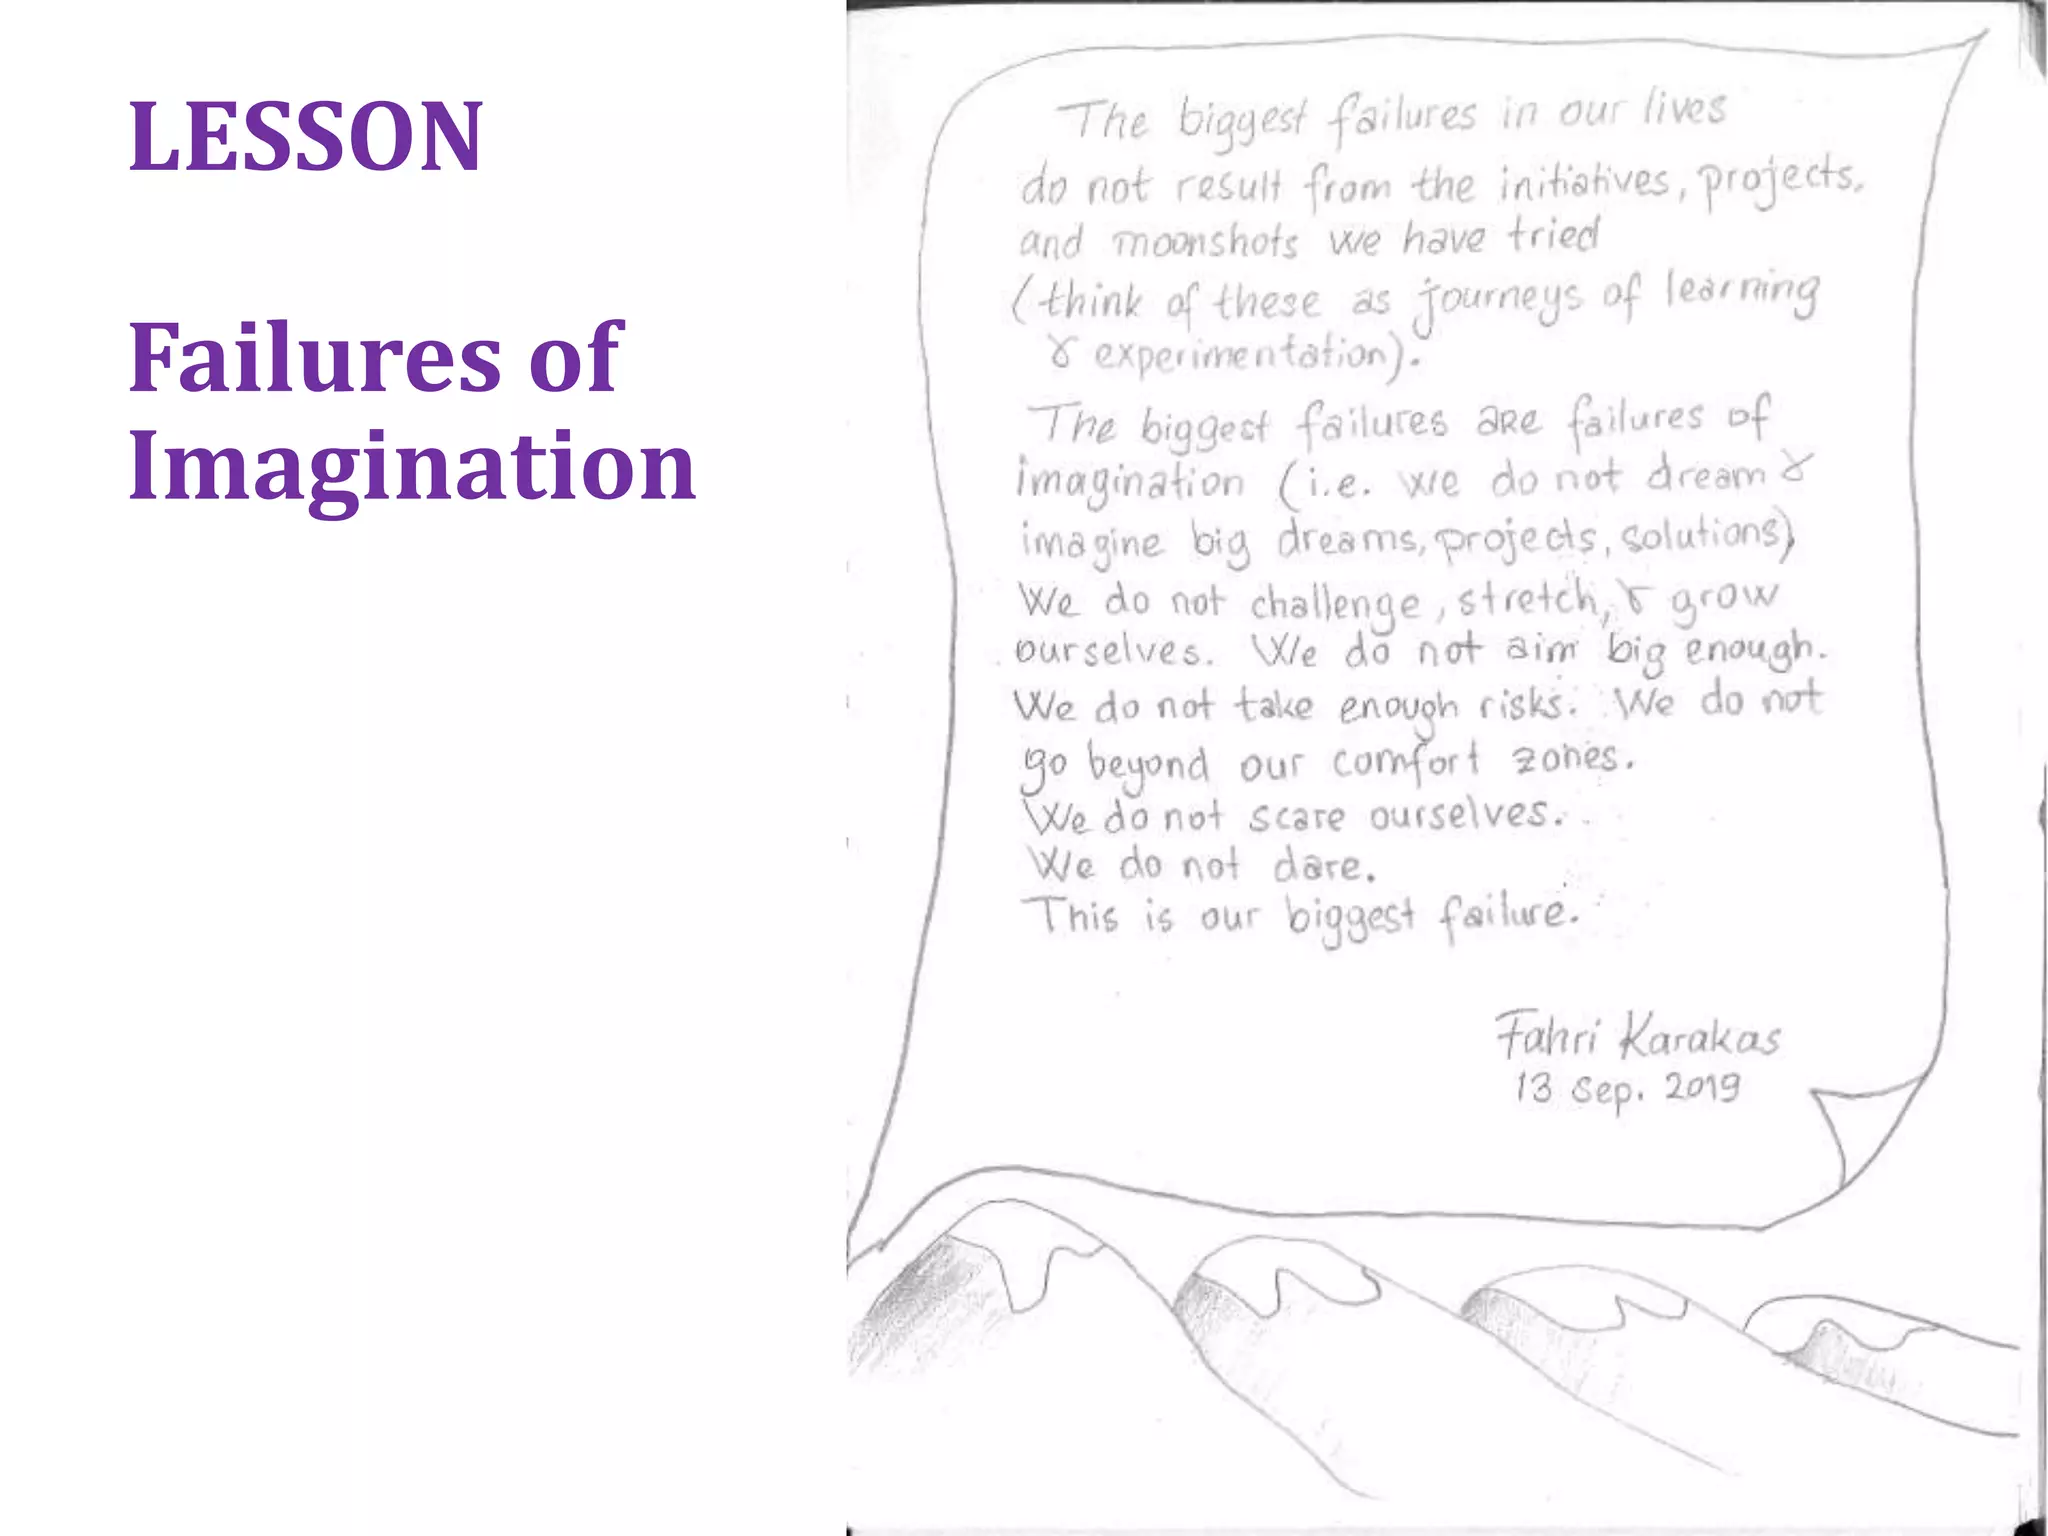 LESSON
Failures of
Imagination
The biggest failures in our lives
do not result from the initiatives, projects,
and moonshots we have tried
(think of these as journeys of learning
& experimentation).
The biggest failures are failures of
imagination (i.e. we do not dream &
imagine big dreams, projects, solutions)
We do not challenge, stretch, & grow
ourselves. We do not aim big enough.
We do not take enough risks. We do not
go beyond our comfort zones.
We do not scare ourselves.
We do not dare.
This is our biggest failure.
Fahri Karakas
13 Sep. 2019